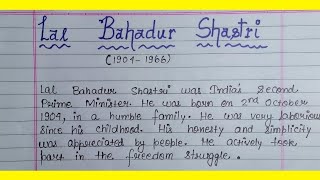 Lal Bahadur Shastri
(1904-1966)
Lal Bahadur Shastri was India's Second
Prime Minister. He was born on 2nd October
1904, in a humble family. He was very laborious
since his childhood. His honesty and simplicity
was appreciated by people. He actively took
part in the freedom struggle.